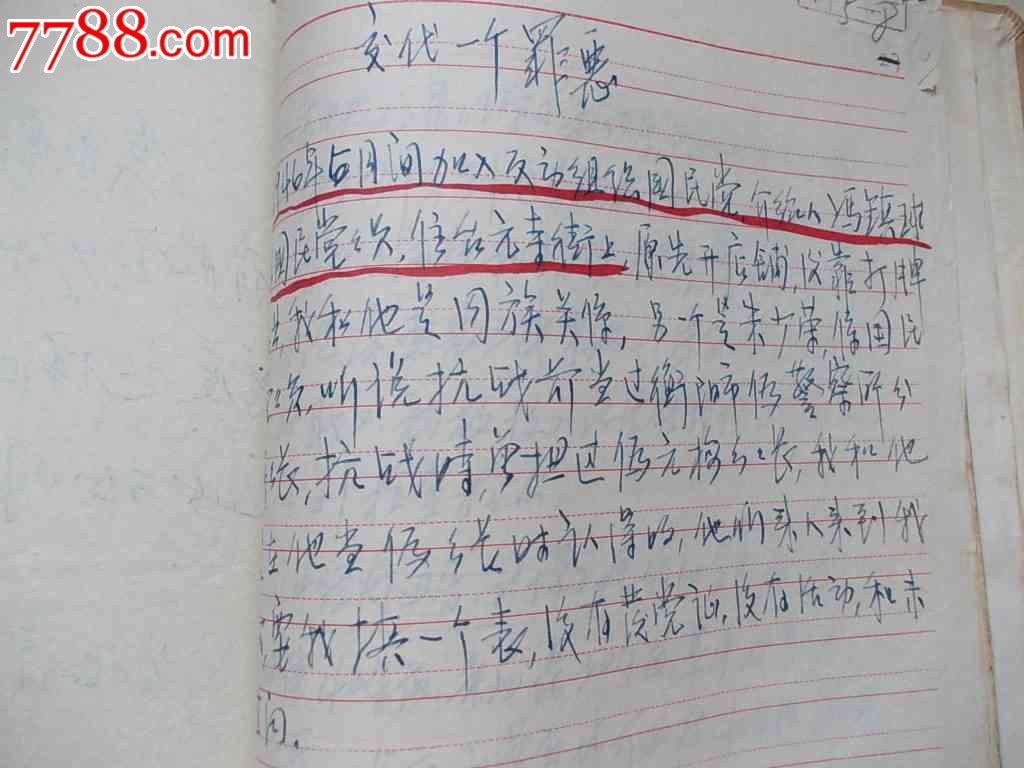 7788.com
交代一个罪恶
46年5月间加入反动组织国民党,介绍人冯镇
国民党员,住台元寺街上,原先开店铺,没靠打牌
我和他是同族关系,另一个是朱少荣,系国民
党员,听说抗战前当过衡阳市伪警察所分
长,抗战时,曾担过伪元梅乡长,我和他
在他当伪乡长时认得的,他们来人来到我
要我填一个表,没有发党证,没有活动,和未
问.